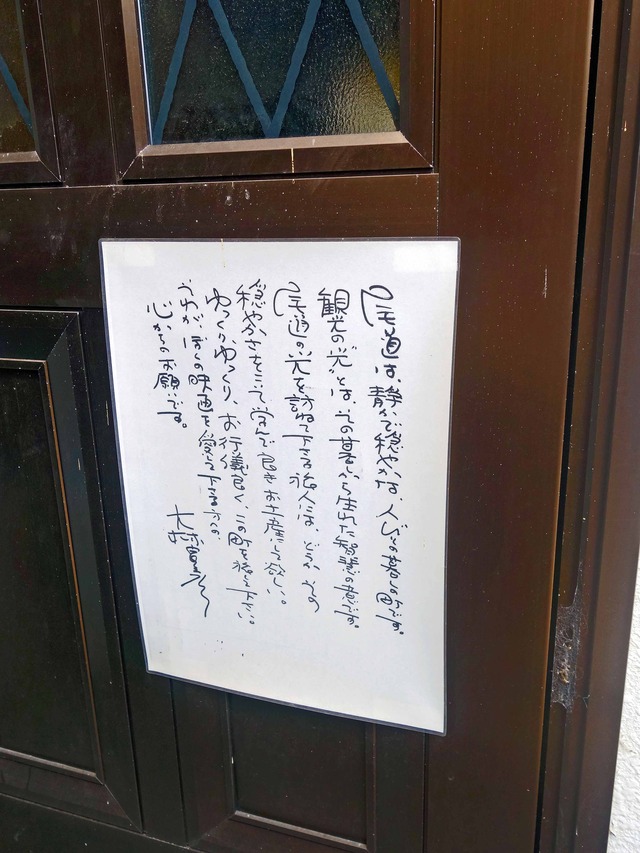 尾道は、静かで穏やかな、人びとの暮しの町です。
観光の“光”とは、その暮から生れた智慧の意です。
尾道の光を訪ねて下さる旅人には、どうか、その
穏やかさをこそ学んで良きお土産にして欲しい。
ゆっくりゆっくり、お行儀良く、この町を旅して下さい。
それが、ぼくの映画を愛して下さる方への
心からのお願いです。
大林宣彦